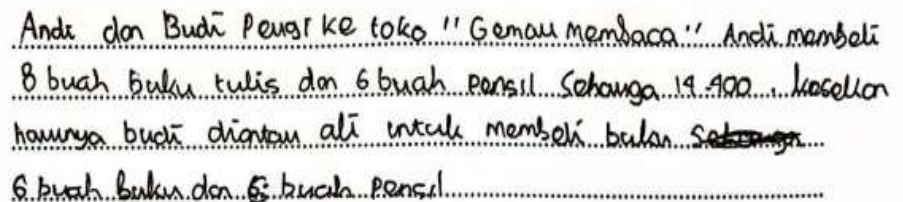 Andi dan Budi Pergi ke toko "Gemar membaca" Andi membeli
8 buah buku tulis dan 6 buah pensil Seharga 14.400. keesokan
harinya budi diantar ali untuk membeli bulan
6 buah buku dan 5 buah pensil